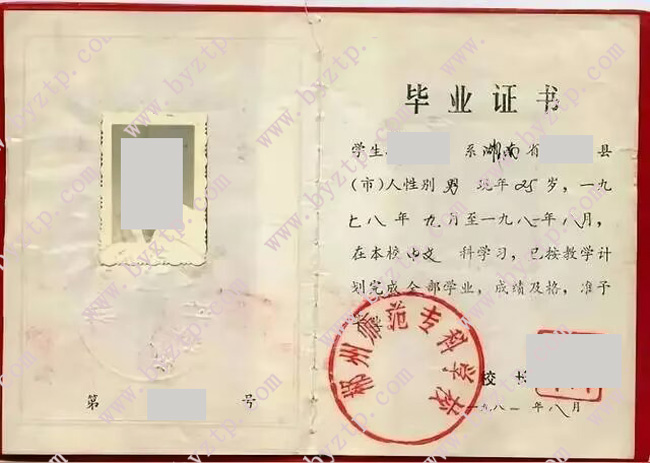 毕业证书
学生 系湖南省 县
(市)人性别男 现年25岁，一九
七八年九月至一九八一年八月，
在本校中文 科学习，已按教学计
划完成全部学业，成绩及格，准予
郴州师范专科学校
校长
一九八一年八月
第 号
www.byztp.com